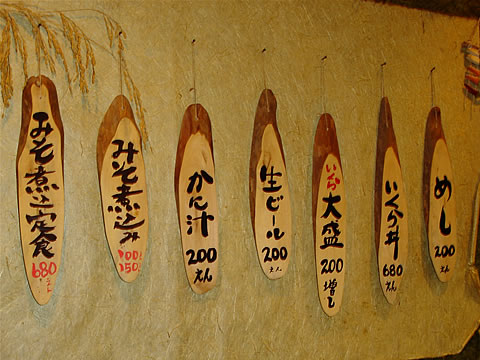 みそ煮込定食
680
えん
みそ煮込み
100!
150.
かん汁
200
えん
生ビール
200
えん
いくら
大盛
200
増し
いくら丼
680
えん
めし
200
えん